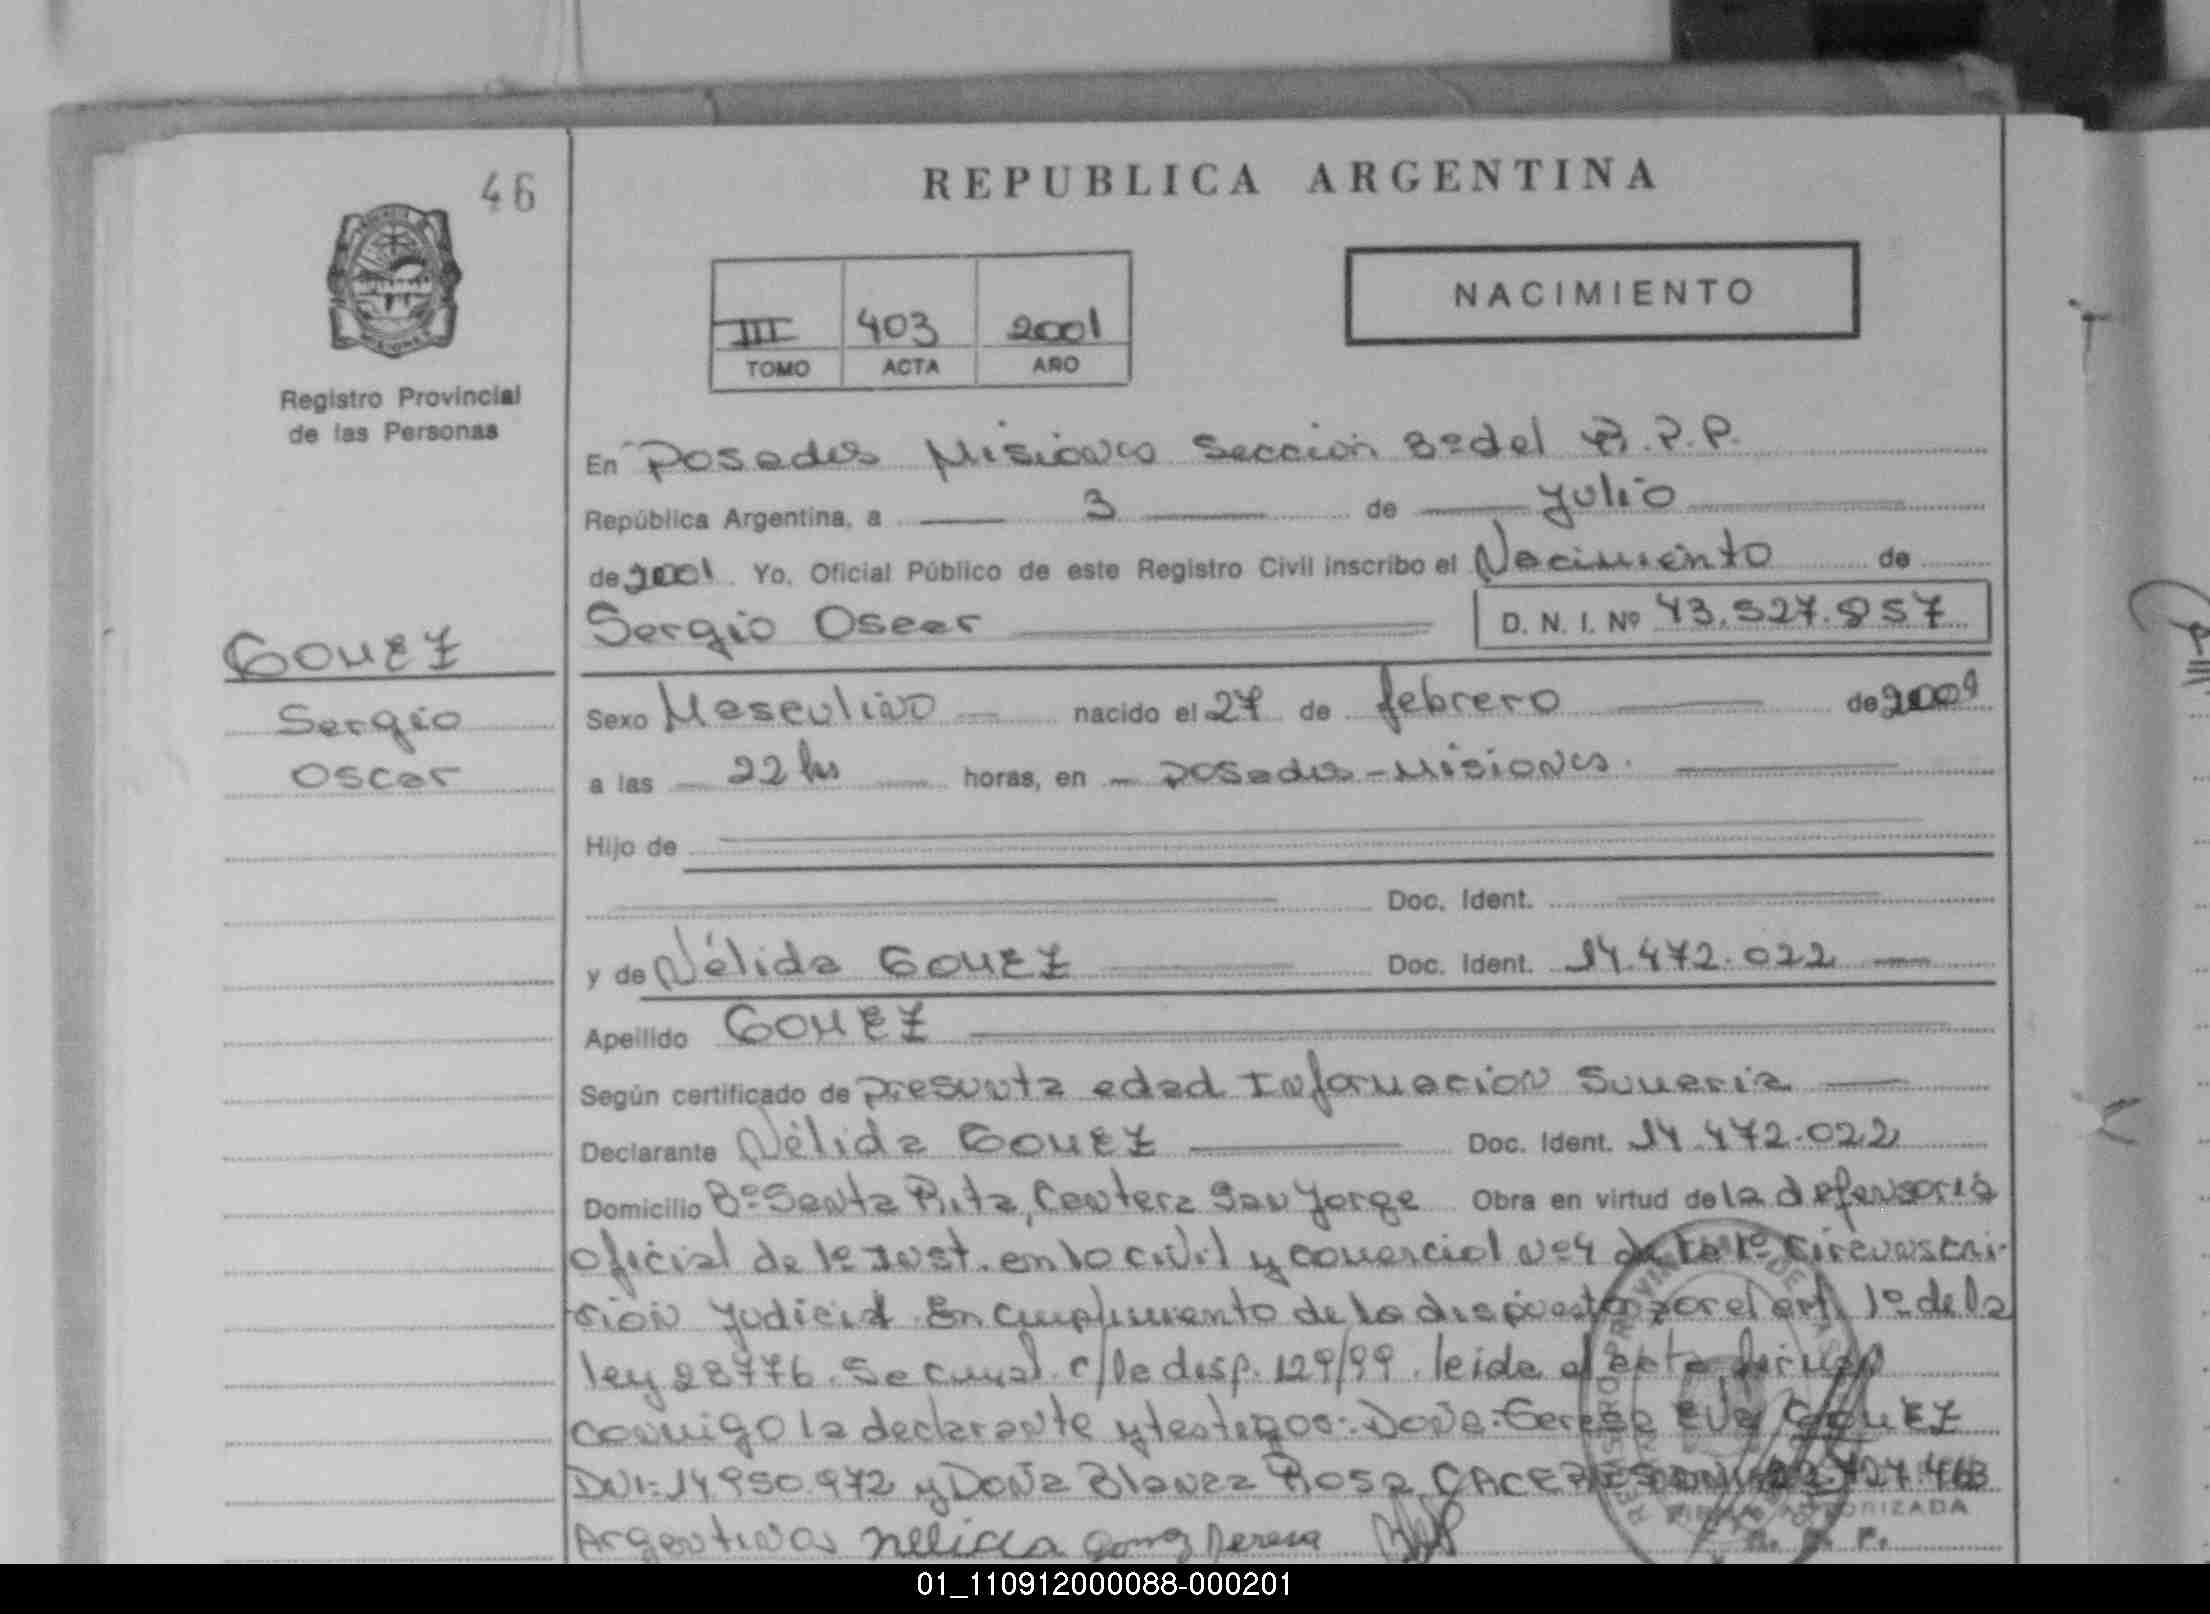 46
REPUBLICA ARGENTINA
NACIMIENTO
III 403 2001
TOMO ACTA AÑO
Registro Provincial
de las Personas
En Posadas Misiones Sección 8º del R.P.P.
República Argentina, a 3 de Julio
de 2001. Yo, Oficial Público de este Registro Civil inscribo el Nacimiento de
Sergio Oscar D. N. I. Nº 43.527.857
GOMEZ
Sergio
Oscar
Sexo Masculino nacido el 27 de febrero de
a las 22 hs horas, en Posadas - Misiones.
Hijo de
Doc. Ident.
y de Nélida GOMEZ Doc. Ident. 14.472.022
Apellido GOMEZ
Según certificado de presunta edad Informacion Sumaria
Declarante Nélida GOMEZ Doc. Ident. 14.472.022
Domicilio Bº Santa Rita, Cantera San Jorge Obra en virtud de la defensoria
oficial de 1º Inst. en lo civil y comercial nº4 de la 1º circunscri-
sion Judicial. En cumplimiento de lo dispuesto por el art. 1º de la
ley 28776. Se cumpl. c/le disp. 129/99. leida el acta firman
conmigo la declarante y testigos: Doña Teresa Eva GOMEZ
DNI: 14.950.972 y Doña Blanca Rosa CACERES DNI
Argentinas Nelida Gomez Teresa
01_110912000088-000201